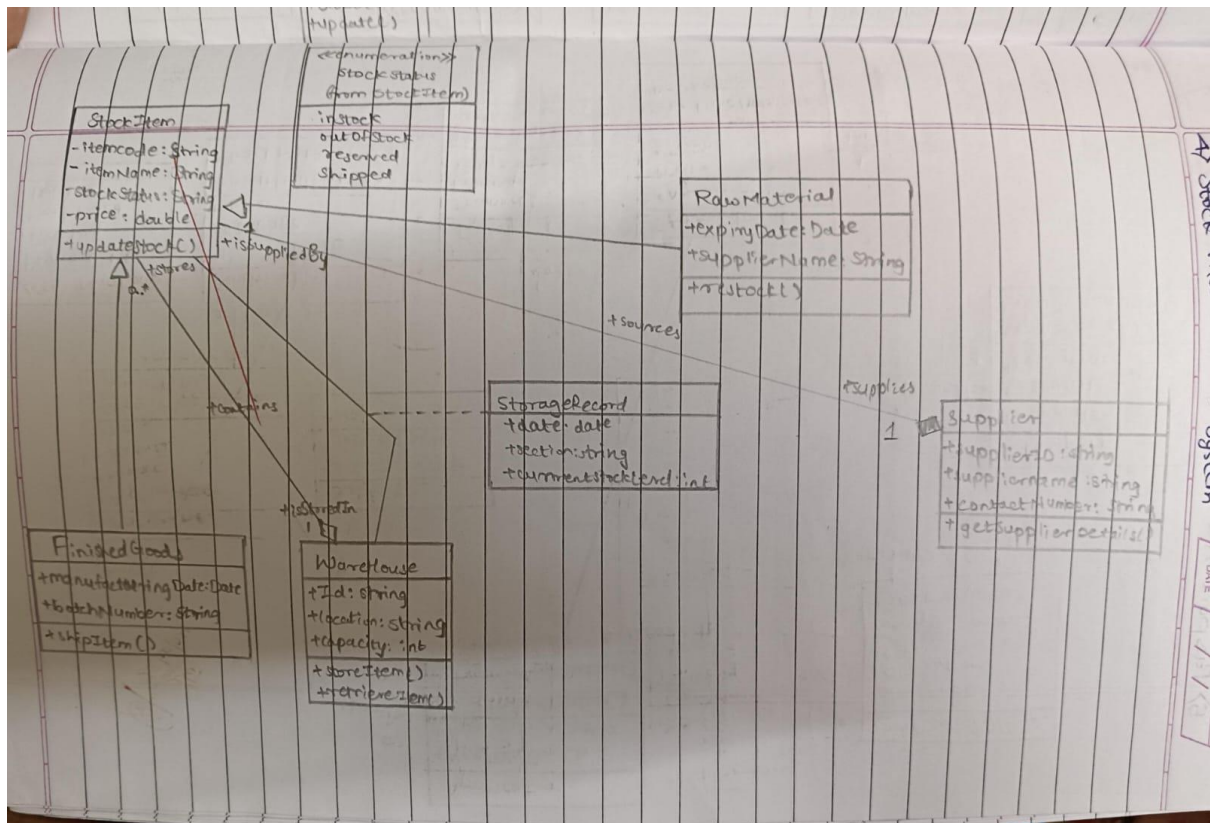 +update()
<<enumeration>>
StockStatus
(from StockItem)
instock
outOfStock
reserved
shipped
StockItem
-itemcode: String
-itemName: String
-stockStatus: String
-price: double
+updatestock()
RawMaterial
+expiryDate: Date
+supplierName: String
+restock()
1
+isSuppliedBy
+stores
+sources
+supplies
1
+contains
StorageRecord
+date: date
+section: string
+currentstocklevel: int
Supplier
+supplierID: string
+suppliername: string
+contactNumber: String
+getSupplierDetails()
+isStoredIn
1
FinishedGoods
+batchNumber: String
+shipItem()
Warehouse
+Id: string
+location: string
+capacity: int
+storeItem()
+retrieveItem()
A) Stock
System
DATE